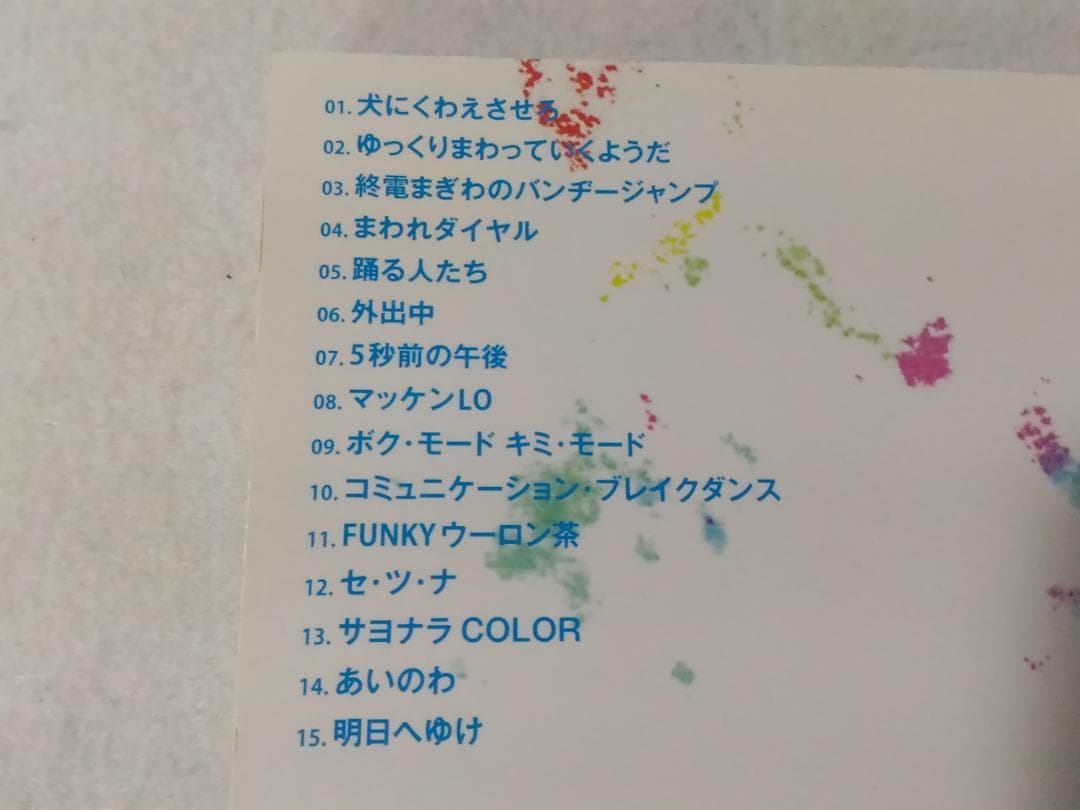 01. 犬にくわえさせろ
02. ゆっくりまわっていくようだ
03. 終電まぎわのバンヂージャンプ
04. まわれダイヤル
05. 踊る人たち
06. 外出中
07. 5秒前の午後
08. マッケンLO
09. ボク・モード キミ・モード
10. コミュニケーション・ブレイクダンス
11. FUNKYウーロン茶
12. セ・ツ・ナ
13. サヨナラCOLOR
14. あいのわ
15. 明日へゆけ